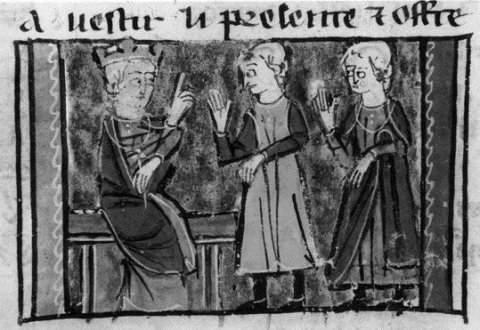 a vestir li presente ⁊ offre